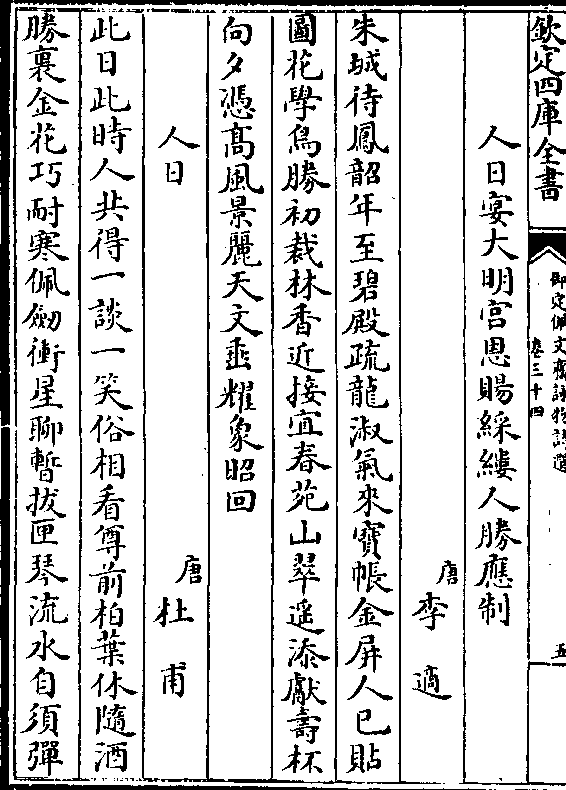 欽定四庫全書
御定佩文齋詠物詩選
卷三十四
五
人日宴大明宮恩賜綵縷人勝應制
唐李適
朱城待鳳韶年至碧殿疏龍淑氣來寶帳金屏人已貼
圖花學鳥勝初裁林香近接宜春苑山翠遥添獻壽杯
向夕憑髙風景麗天文垂耀象昭回
人日
唐杜甫
此日此時人共得一談一笑俗相看尊前柏葉休隨酒
勝裏金花巧耐寒佩劒衝星聊暫拔匣琴流水自須彈